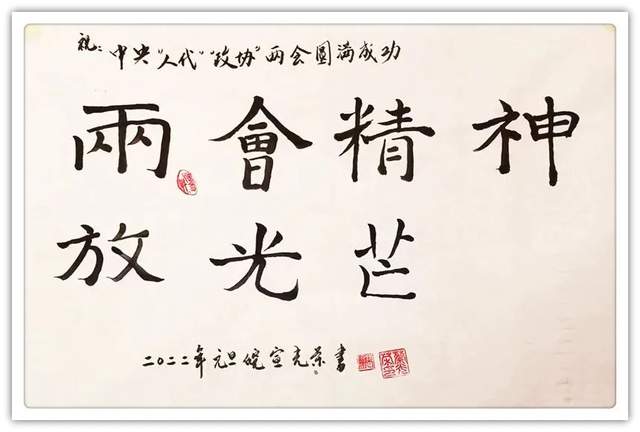 祝:中央"人代""政协"两会圆满成功
兩會精神
放光芒
二〇二二年元旦皖宣克荣书